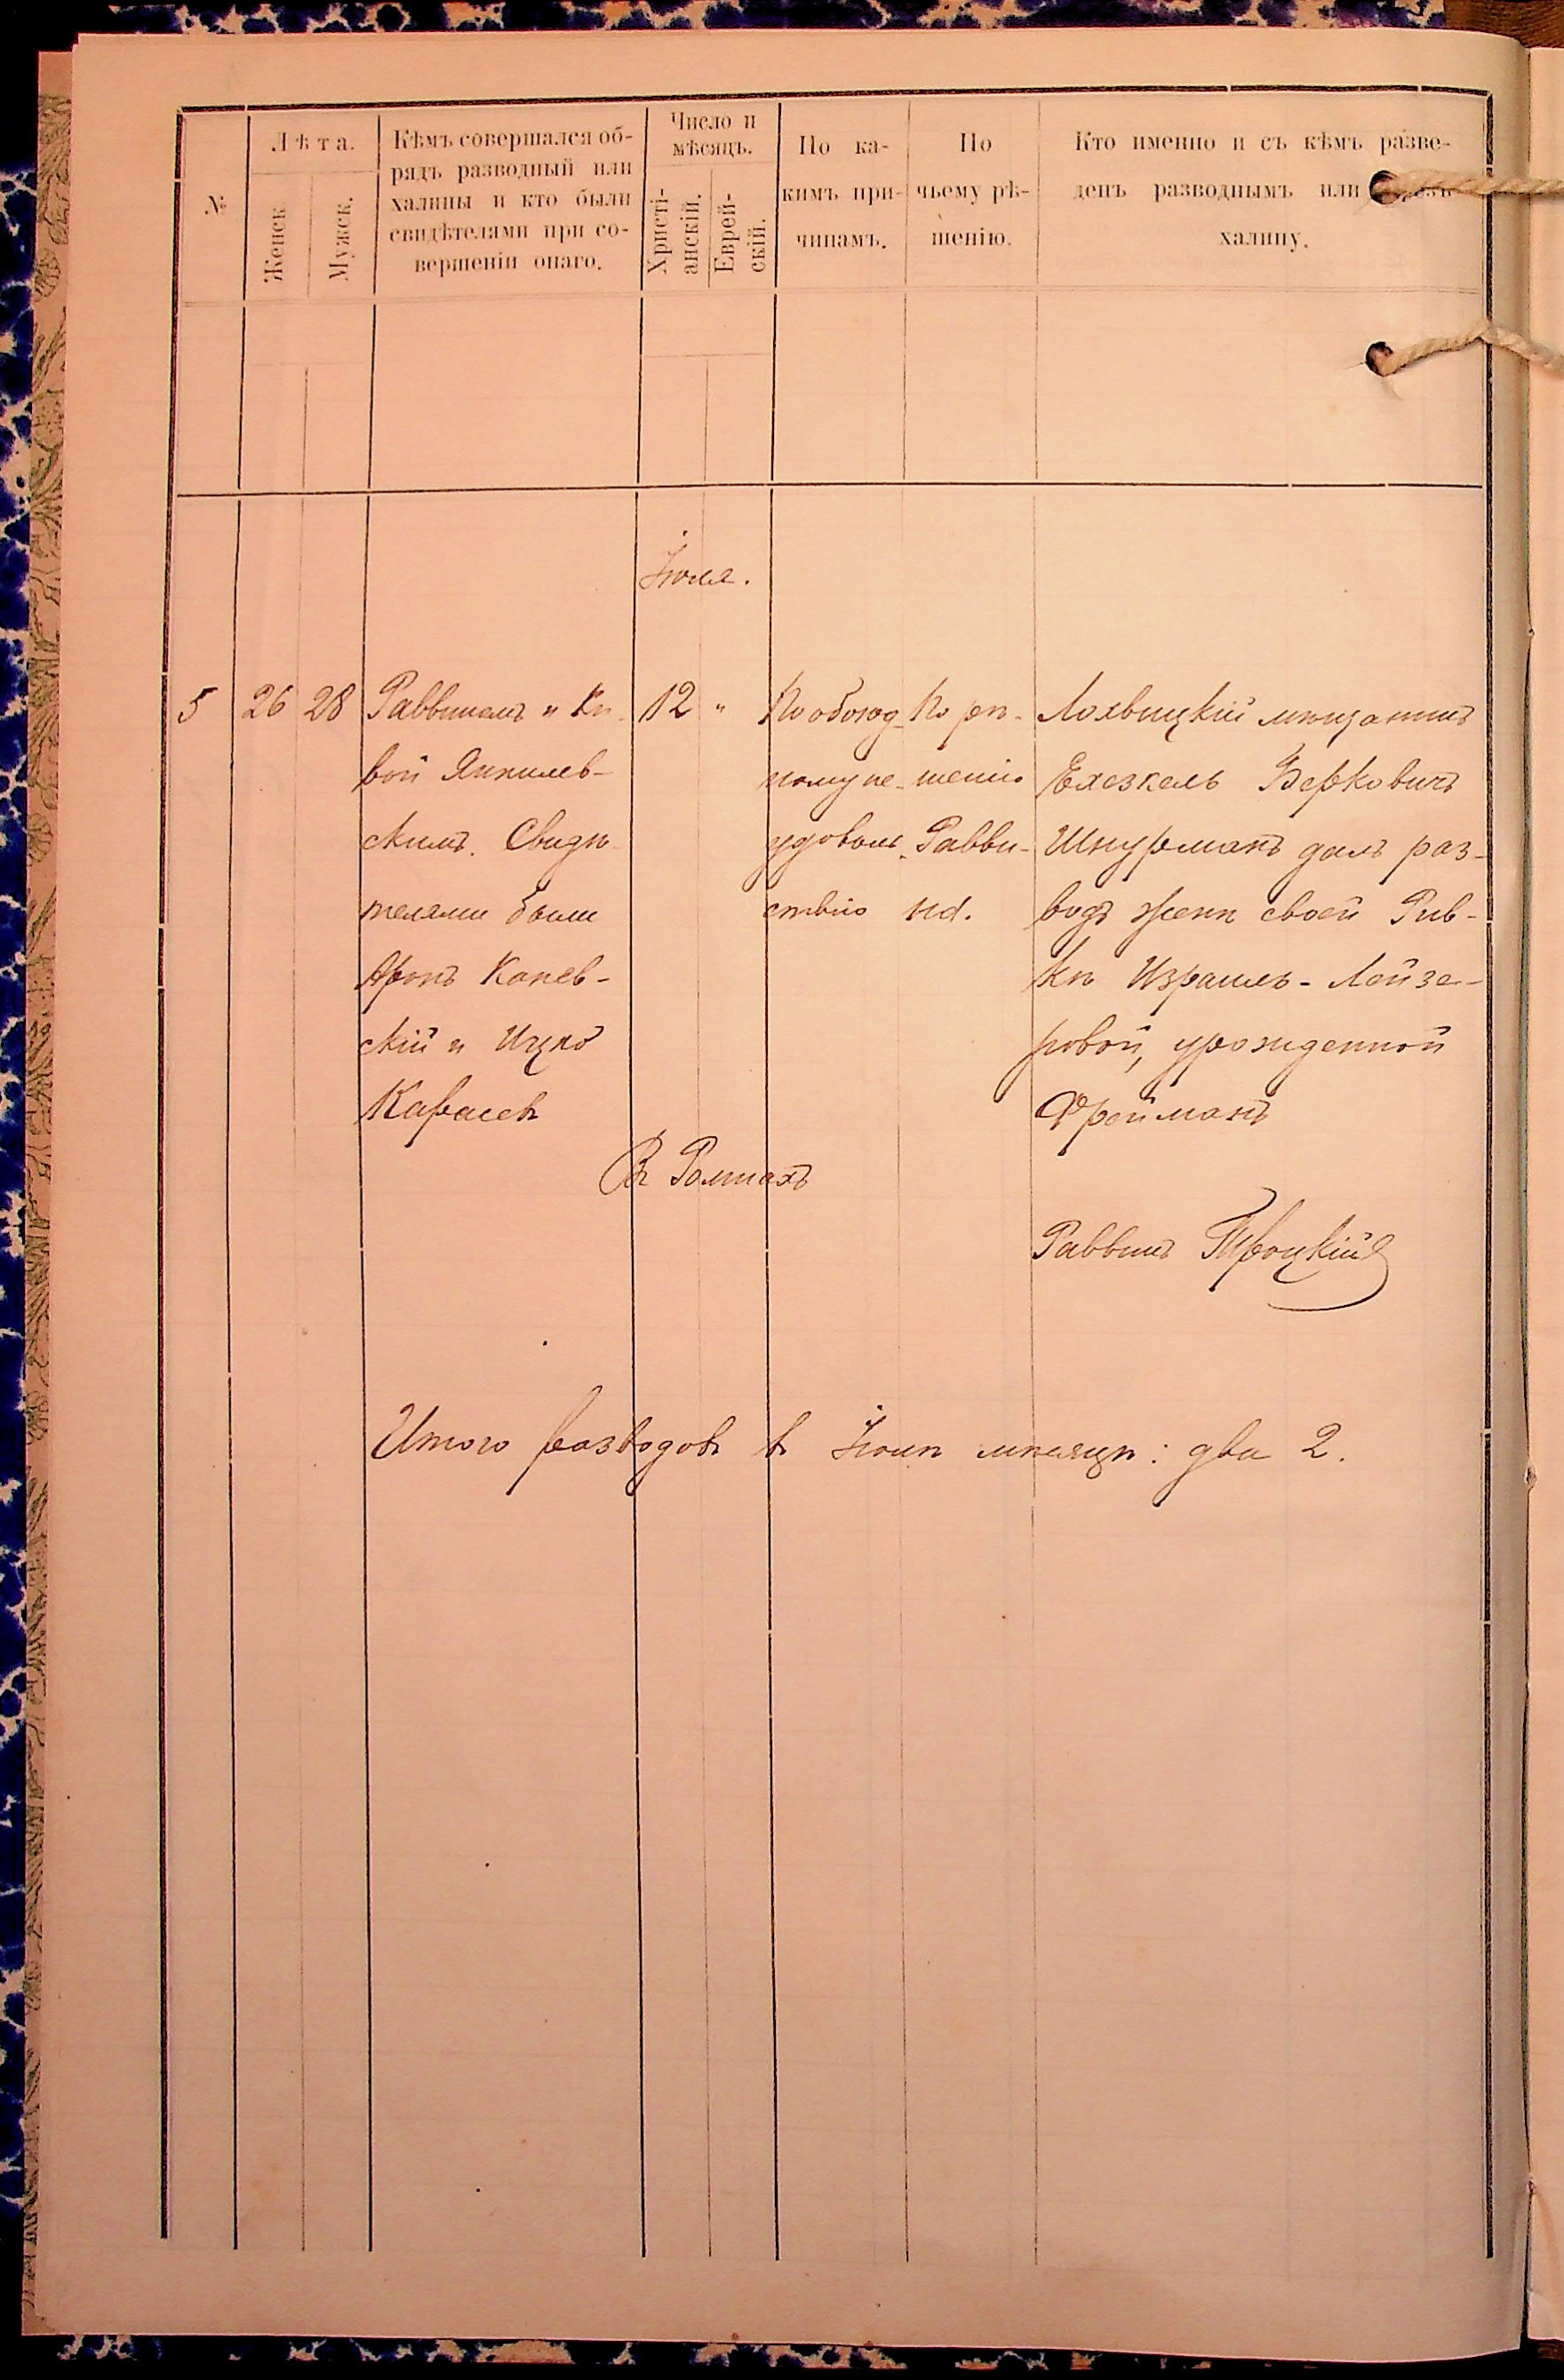 №
Лѣта.
Женск
Мужск.
Кѣмъ совершался об-
рядъ разводный или
халицы и кто были
свидѣтелями при со-
вершеніи онаго.
Число и
мѣсяцъ.
Христі-
анскій.
Еврей-
скій.
По ка-
кимъ при-
чинамъ.
По
чьему рѣ-
шенію.
Кто именно и съ кѣмъ разве-
денъ разводнымъ или
халицу.
Іюля.
5
26
28
Раввиномъ
скимъ. Свидѣ-
телями были
Аронъ Канев-
скій и Ицко
Карасев
12 "
По обоюд-
ному не-
удоволь-
ствію
По рѣ-
шенію
Равви-
на.
мѣщанинъ
Ехезкель Берковичъ
Шнурманъ далъ раз-
водъ женѣ своей Рив-
кѣ Израиль-Лейзе-
ровой, урожденной
Фрейманъ
Въ Ромнахъ
Раввинъ Троцкій
Итого разводовъ въ мѣсяцѣ: два 2.